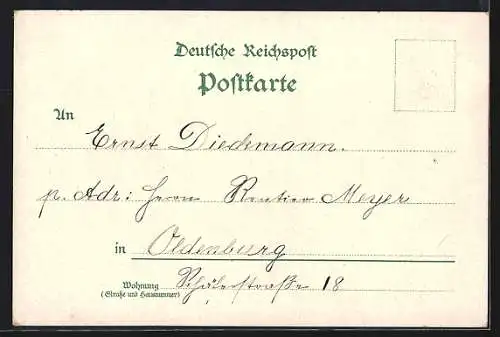 Deutsche Reichspost
Postkarte
An
Ernst Dieckmann.
p. Adr: Herrn Rentier Meyer
in Oldenburg
Wohnung Schäferstraße 18
(Straße und Hausnummer)